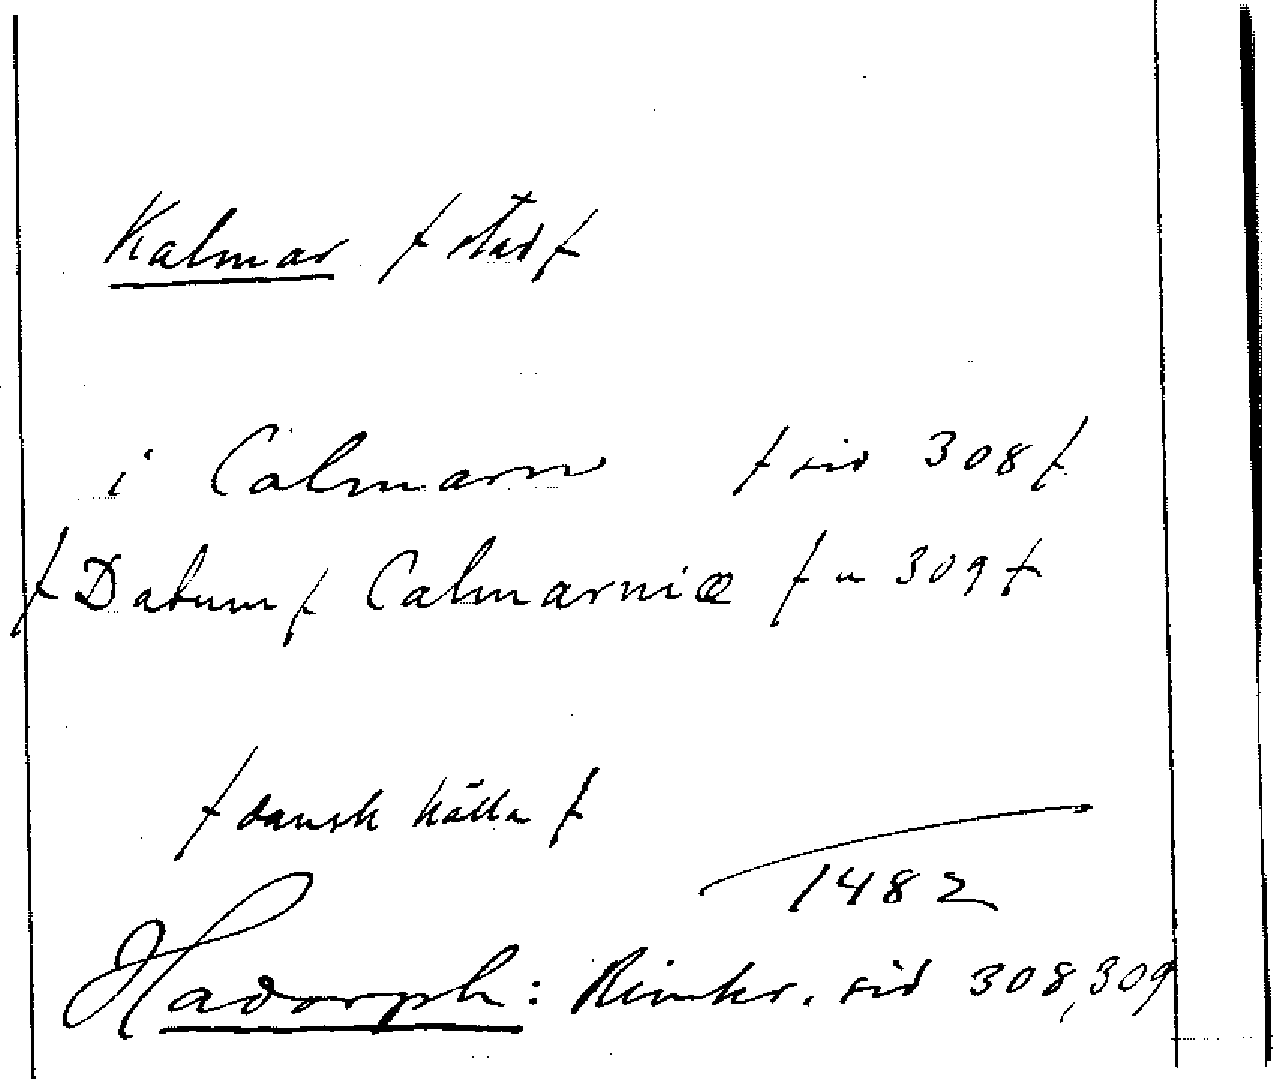 Kalmar / stad /
i Calmarn / sid 308 /
/ Datum / Calmarniæ / " 309 /
/ dansk källa /
1482
Hadorph: Rimkr. sid 308, 309